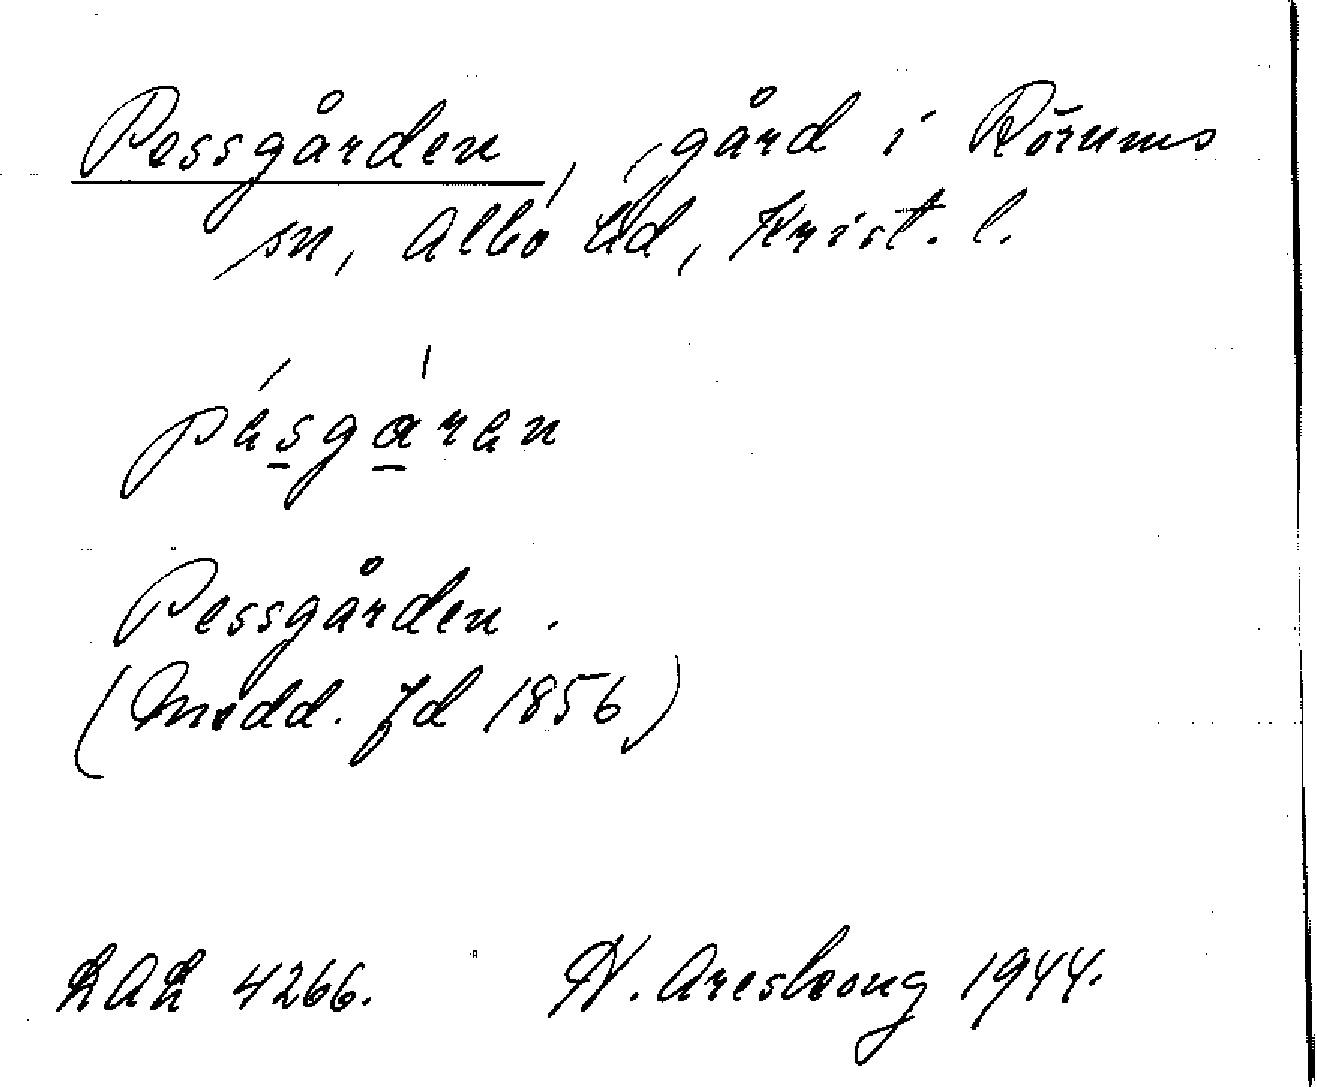 Pessgården, gård i Rörums
sn, Albo hd, Krist. l.
pesgaren
Pessgården.
(Medd. Jd 1856)
LAL 4266. H. Areskoug 1944.